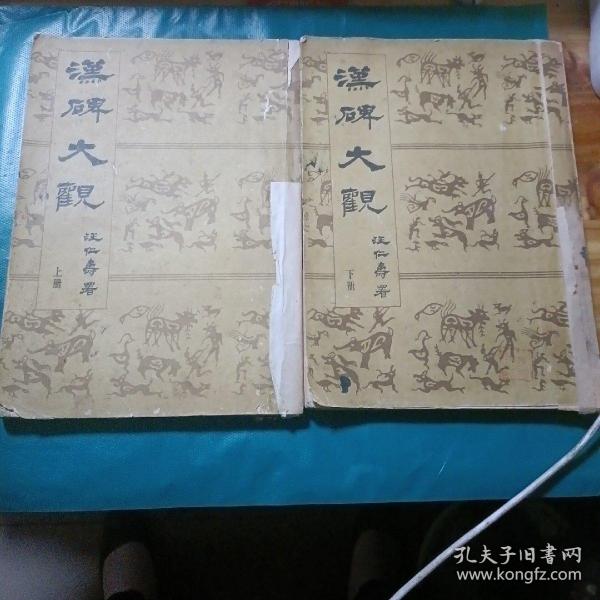 漢碑大觀
汪仁壽署
上册
漢碑大觀
汪仁壽署
下册
孔夫子旧書网
www.kongfz.com